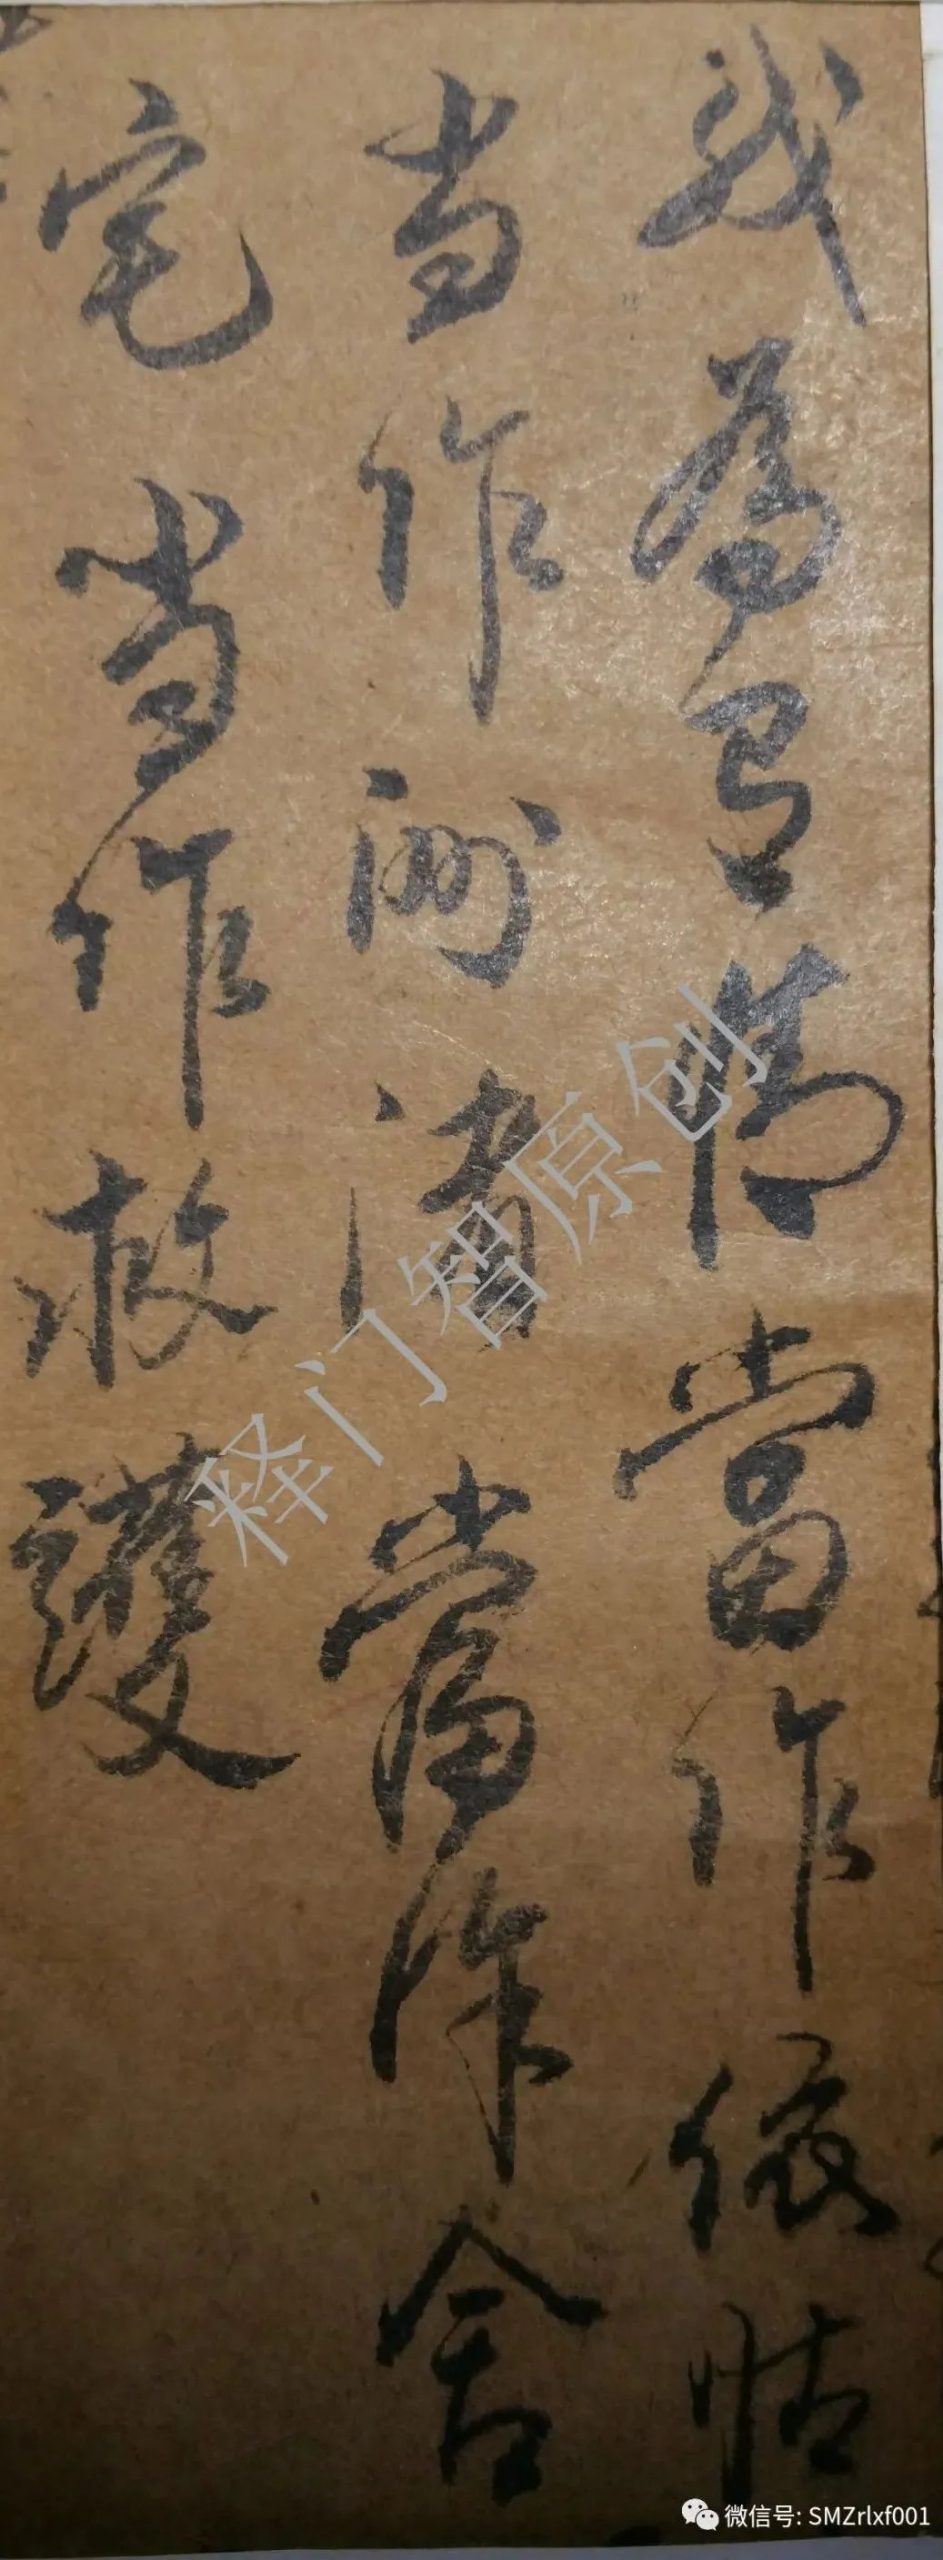 我為有情當作依怙
當作洲渚當作舍
宅當作救護
释门智原创
微信号: SMZrlxf001